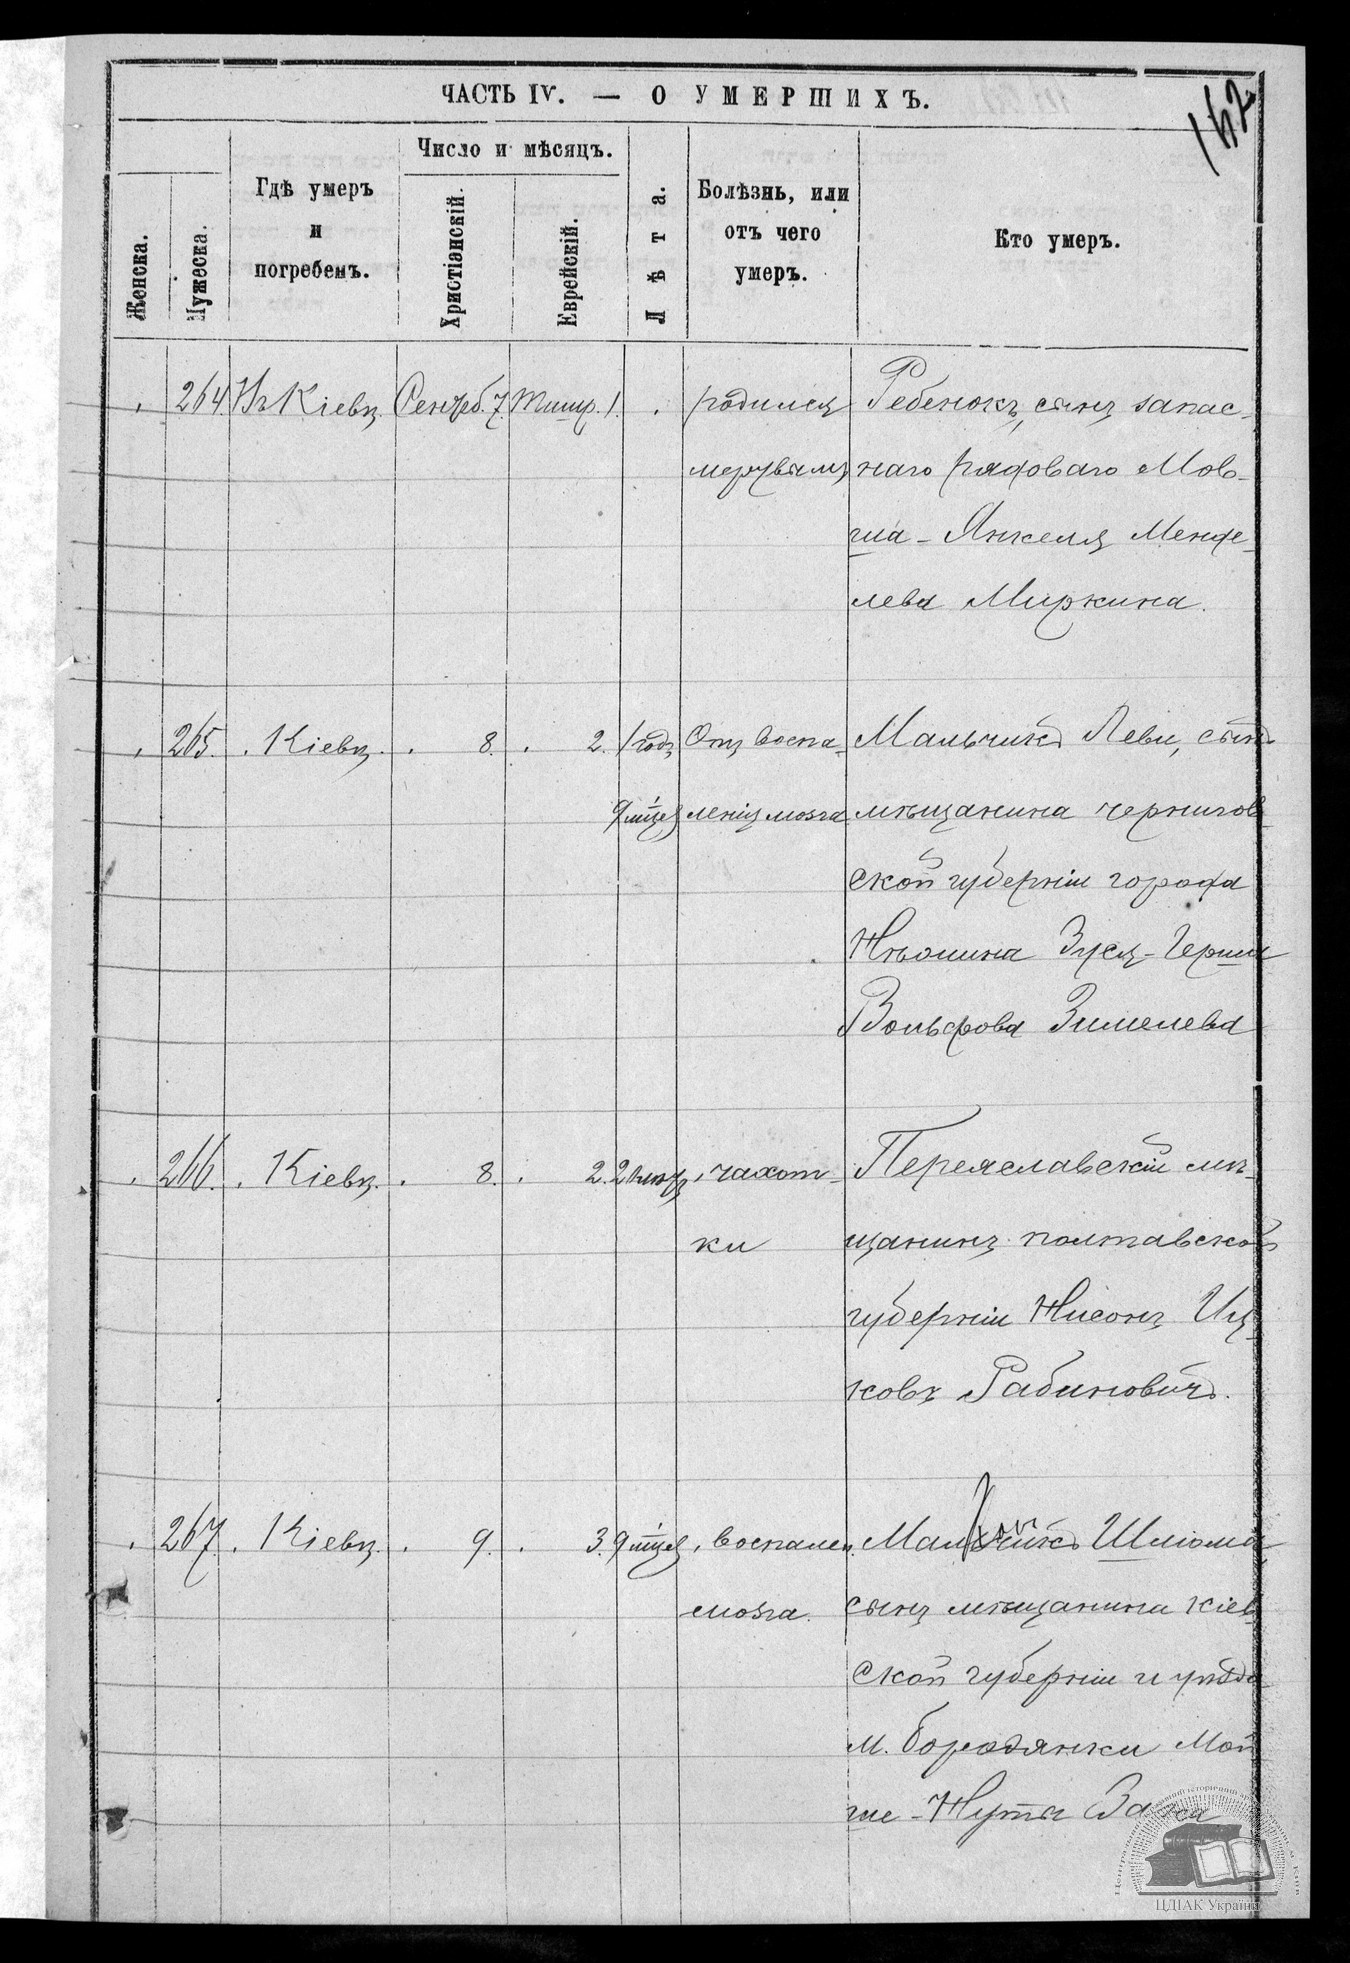 142
ЧАСТЬ IV. — О УМЕРШИХЪ.
Женска.
Мужеска.
Гдѣ умеръ
и
погребенъ.
Число и мѣсяцъ.
Христіянскій.
Еврейскій.
Лѣта.
Болѣзнь, или
отъ чего
умеръ.
Кто умеръ.
264 Въ Кіевѣ Сентяб. 7. Тишр. 1. родился Ребенокъ, сынъ запас-
мертвымъ наго рядоваго Мов-
ша-Янкеля Менде-
лева Миркина.
265. Кіевѣ. 8. 2. 1 годъ Отъ воспа- Мальчикъ Леви, сынъ
9 мѣсяц ленія мозга мѣщанина чернигов-
ской губерніи города
Нѣжина Зуся-Герша
Вольфова Зимелева
266. Кіевѣ. 8. 2. чахот- Переяславскій мѣ-
ки щанинъ полтавской
губерніи Нисонъ Иц-
ковъ Рабиновичъ.
267. Кіевѣ. 9. 3. 9 мѣсяц воспален. Мальчикъ Шліома,
мозга. сынъ мѣщанина Кіев-
ской губерніи и уѣзда
м. Бородянки Мой-
ше-Нуты
ЦДІАК України